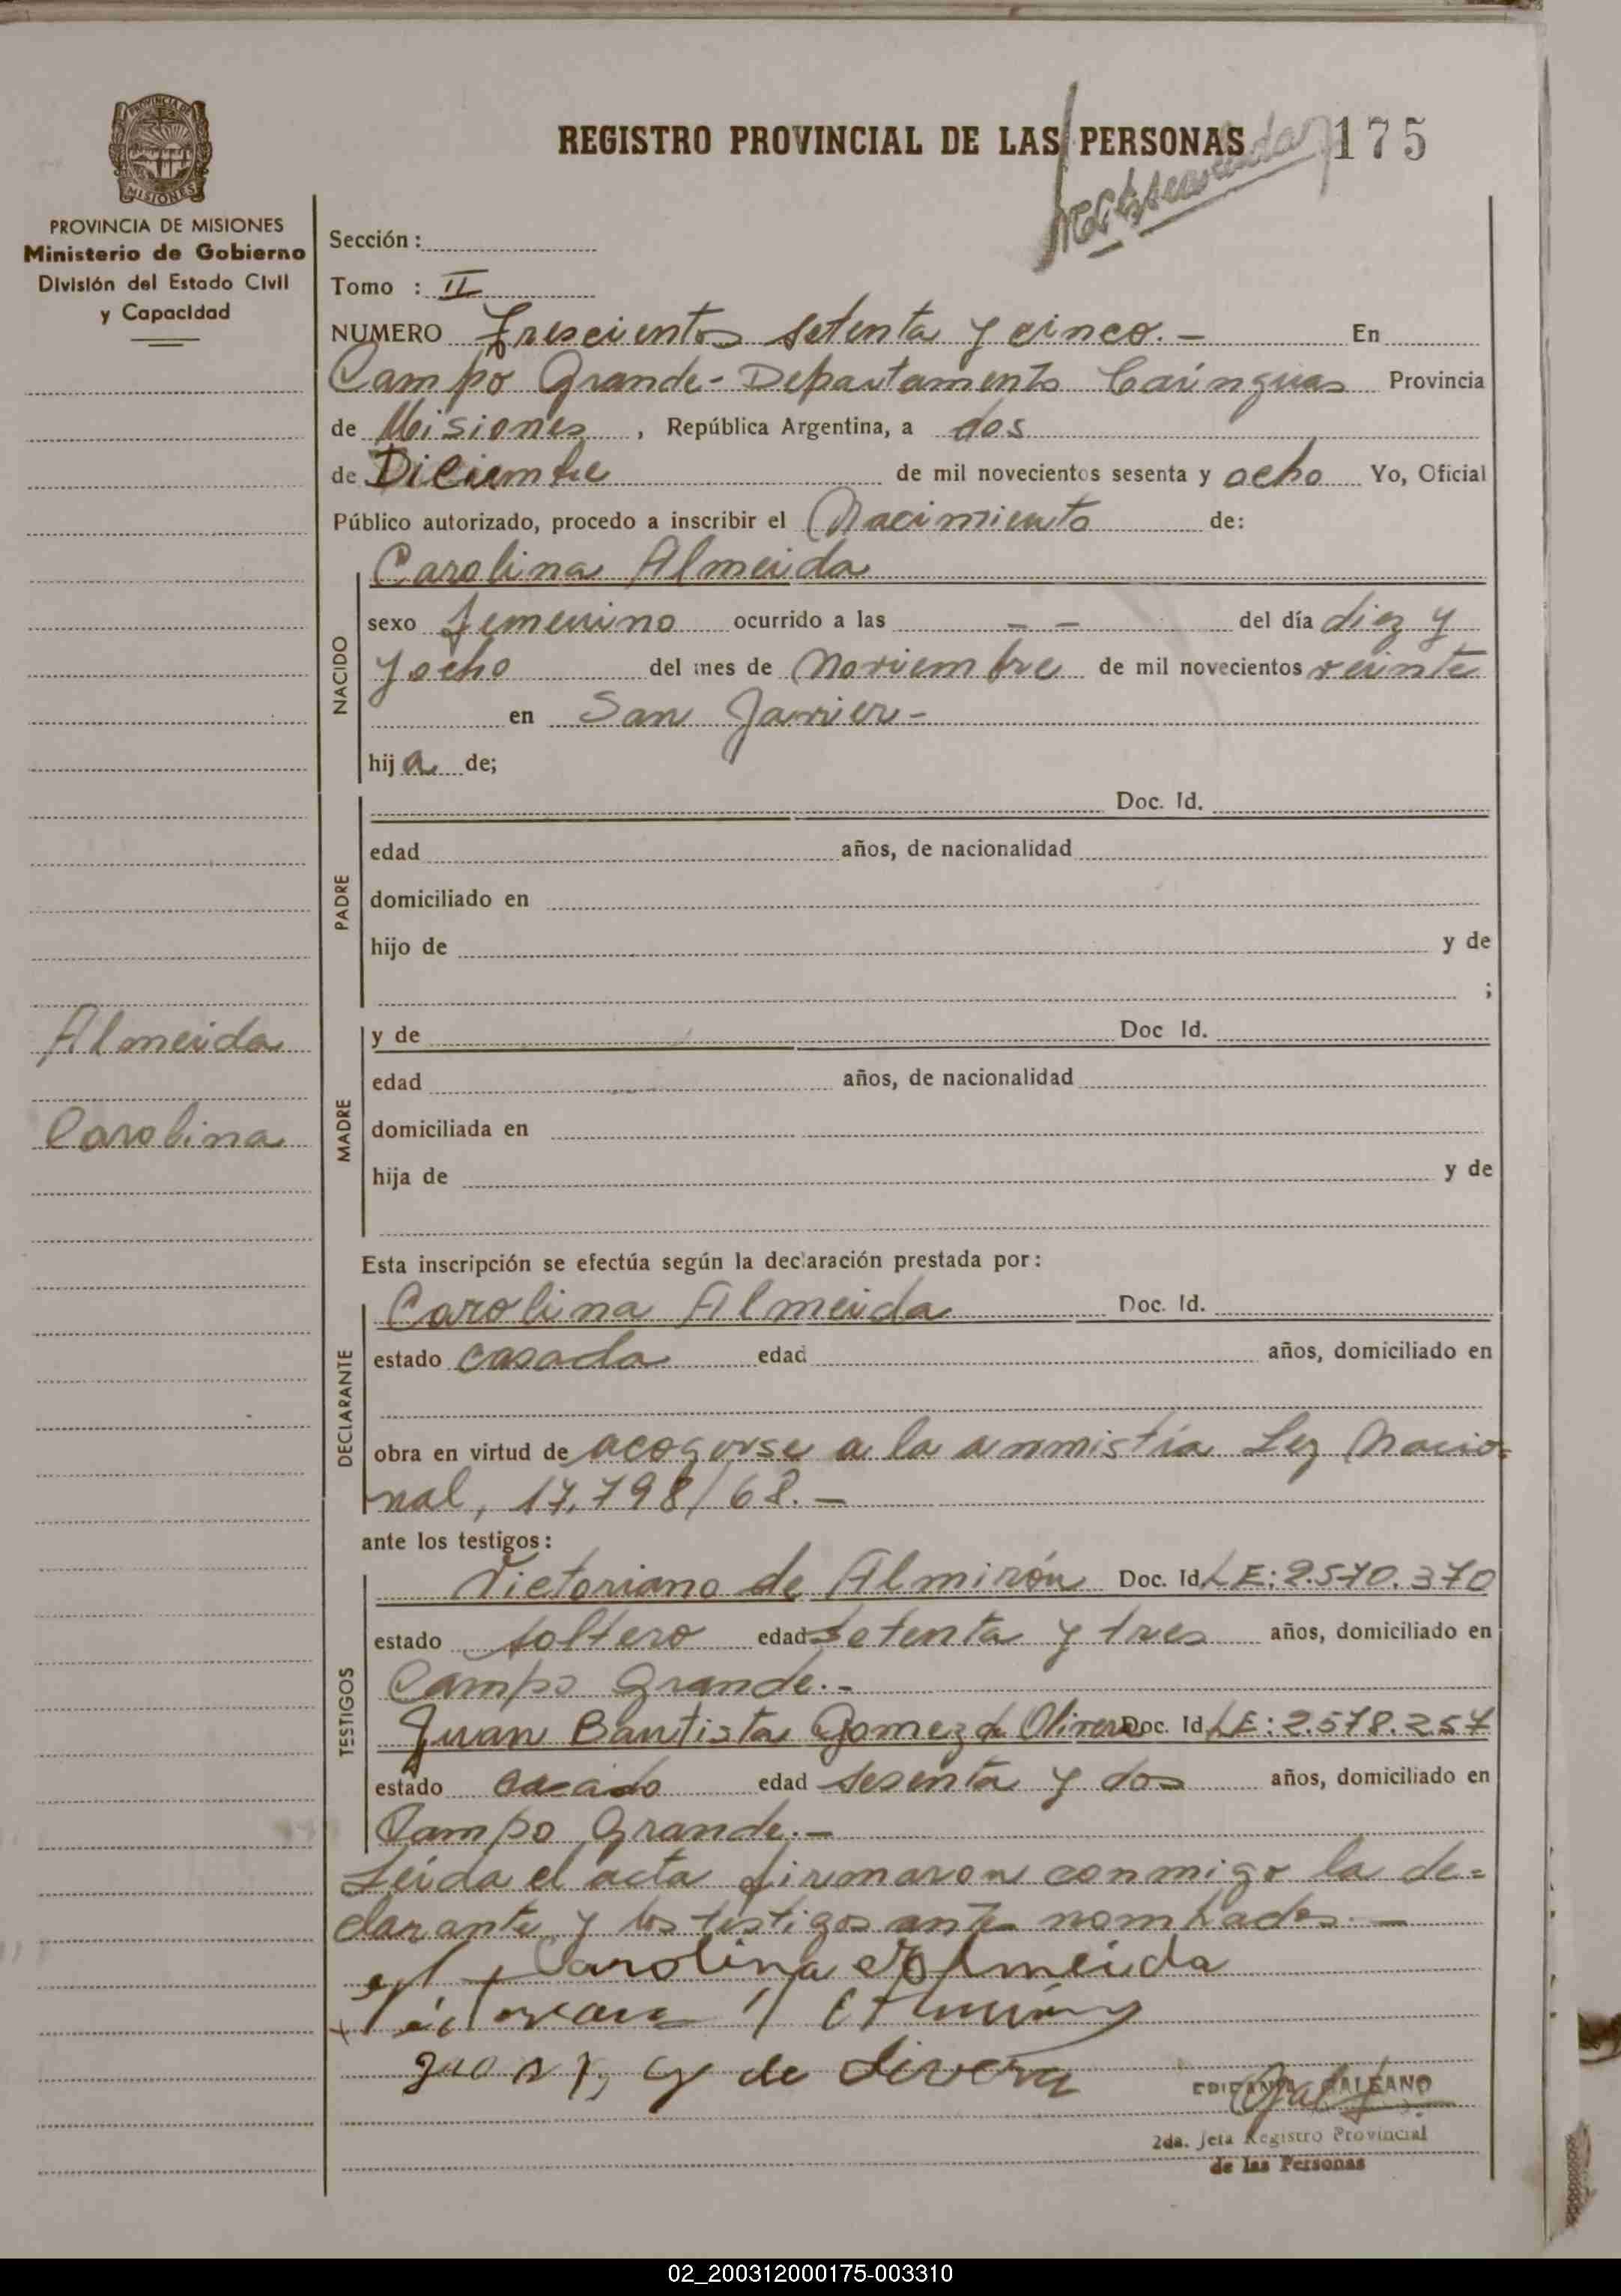 REGISTRO PROVINCIAL DE LAS PERSONAS 175
PROVINCIA DE
MISIONES
PROVINCIA DE MISIONES
Ministerio de Gobierno
División del Estado Civil
y Capacidad
Sección :
Tomo : II
NUMERO Trescientos setenta y cinco. - En
Campo Grande - Departamento Cainguas Provincia
de Misiones , República Argentina, a dos
de Diciembre de mil novecientos sesenta y ocho Yo, Oficial
Público autorizado, procedo a inscribir el Nacimiento de:
Carolina Almeida
NACIDO
sexo femenino ocurrido a las - - del día diez y
y ocho del mes de Noviembre de mil novecientos veinte
en San Javier -
hija de;
PADRE
Doc. Id.
edad años, de nacionalidad
domiciliado en
hijo de y de
;
Almeida
Carolina
MADRE
y de Doc Id.
edad años, de nacionalidad
domiciliada en
hija de y de
Esta inscripción se efectúa según la declaración prestada por:
DECLARANTE
Carolina Almeida Doc. Id.
estado casada edad años, domiciliado en
obra en virtud de acogerse a la anmistía Ley Nacio-
nal, 17.798/68. -
ante los testigos:
TESTIGOS
Victoriano de Almirón Doc. Id LE: 2.570.370
estado soltero edad setenta y tres años, domiciliado en
Campo Grande. -
Juan Bautista Gomez de Olivera Doc. Id LE: 2.578.257
estado casado edad sesenta y dos años, domiciliado en
Campo Grande. -
Leida el acta firmaron conmigo la de=
clarante y los testigos ante nombrados. -
Carolina Almeida
de Livera
EPIFANIA GALEANO
2da. Jefa Registro Provincial
de las Personas
02_200312000175-003310